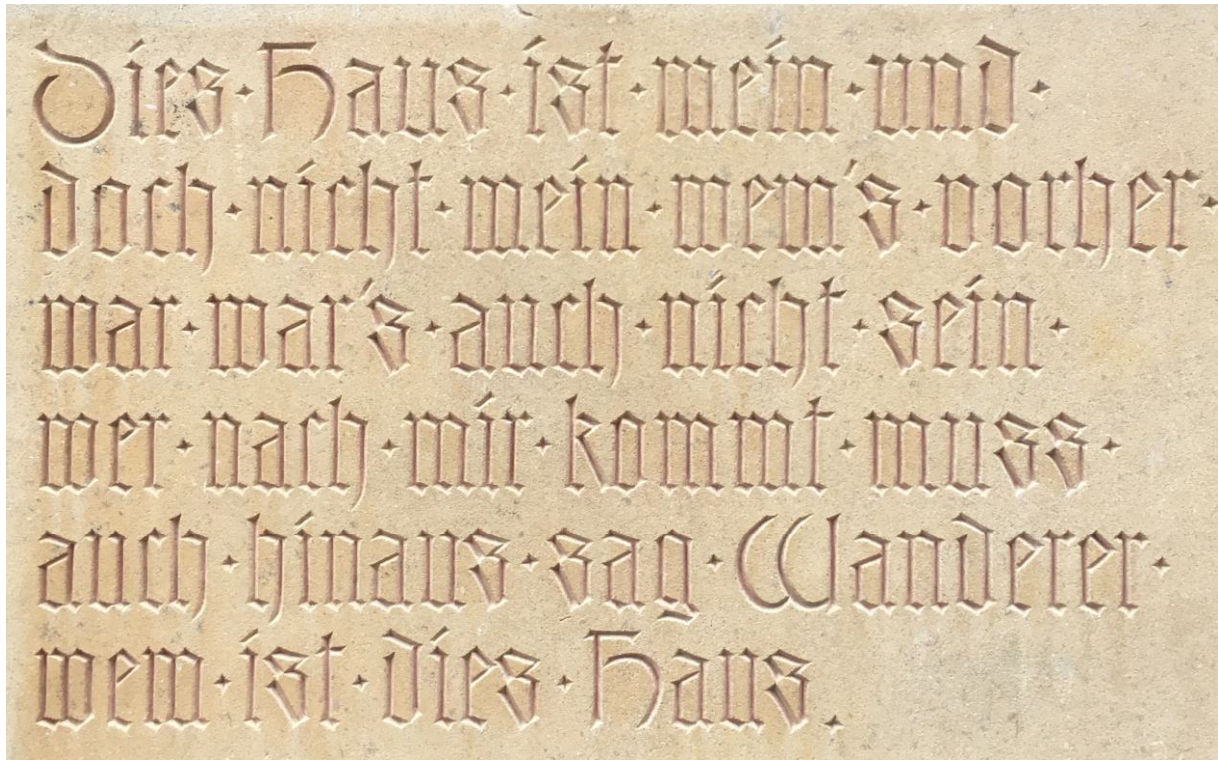 Dies·Haus·ist·mein·und·
doch·nicht·mein·wem's·vorher·
war·war's·auch·nicht·sein·
wer·nach·mir·kommt·muss·
auch·hinaus·sag·Wanderer·
wem·ist·dies·Haus.